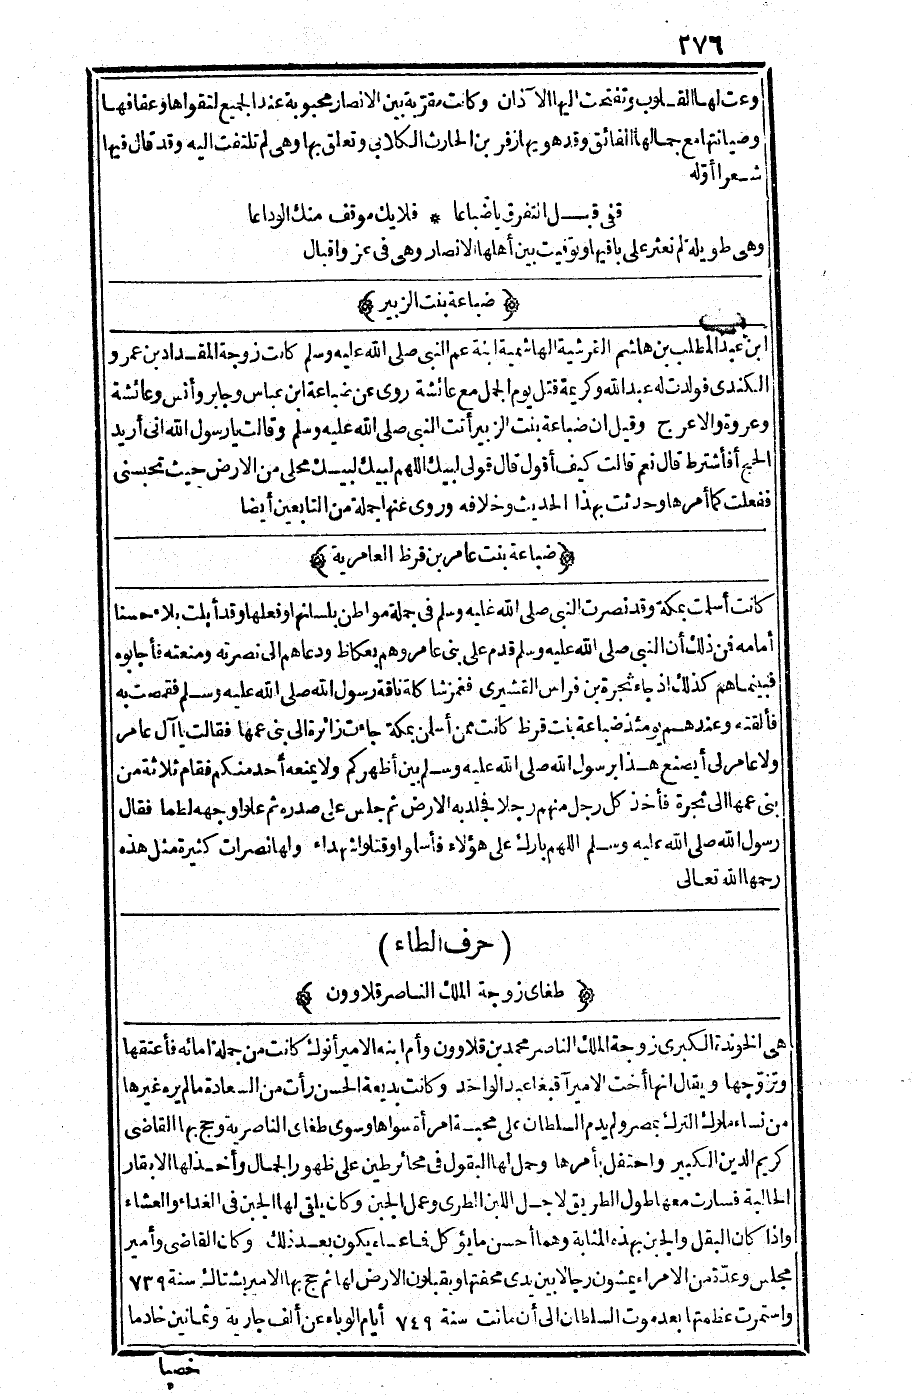 ٢٧٦
وعت لها القلوب وتفتحت اليها الآذان وكانت مقربة بين الانصار محبوبة عند الجميع لتقواها وعفافها
وصيانتها مع جمالها الفائق وقد هويها زفر بن الحارث الكلابي وتعلق بها وهى لم تلتفت اليه وقد قال فيها
شعرا أوله
قفي قبل التفرق ياضباعا * فلايك موقف منك الوداعا
وهى طويلة لم نعثر على باقيها وتوفيت بين أهلها الانصار وهى فى عز واقبال
﴿ ضباعة بنت الزبير ﴾
ابن عبد المطلب بن هاشم القرشية الهاشمية ابنة عم النبى صلى الله عليه وسلم كانت زوجة المقداد بن عمرو
الكندى فولدت له عبد الله وكريمة قتل يوم الجمل مع عائشة روى عن ضباعة ابن عباس وجابر وأنس وعائشة
وعروة والاعرج وقيل ان ضباعة بنت الزبير أتت النبى صلى الله عليه وسلم وقالت يارسول الله انى أريد
الحج أفأشترط قال نعم قالت كيف أقول قال قولى لبيك اللهم لبيك لبيك محلى من الارض حيث تحبسنى
ففعلت كما أمرها وحدثت بهذا الحديث وخلافه وروى عنها جملة من التابعين أيضا
﴿ ضباعة بنت عامر بن قرظ العامرية ﴾
كانت أسلمت بمكة وقد نصرت النبى صلى الله عليه وسلم فى جملة مواطن بلسانها وفعلها وقد أبلت بلاء حسنا
أمامه فمن ذلك أن النبى صلى الله عليه وسلم قدم على بنى عامر وهم بعكاظ ودعاهم الى نصرته ومنعته فأجابوه
فبينماهم كذلك اذ جاء بجرة بن فراس القشيرى فغمز شاكلة ناقة رسول الله صلى الله عليه وسلم فقمصت به
فألقته وعندهم يومئذ ضباعة بنت قرظ كانت ممن أسلمن بمكة جاءت زائرة الى بنى عمها فقالت ياآل عامر
ولاعامر لى أيصنع هذا برسول الله صلى الله عليه وسلم بين أظهركم ولايمنعه أحد منكم فقام ثلاثة من
بنى عمها الى بجرة فأخذ كل رجل منهم رجلا فجلد به الارض ثم جلس على صدره ثم علوا وجهه لطما فقال
رسول الله صلى الله عليه وسلم اللهم بارك على هؤلاء فأسلموا وقتلوا شهداء ولها نصرات كثيرة مثل هذه
رحمها الله تعالى
( حرف الطاء )
﴿ طغاى زوجة الملك الناصر قلاوون ﴾
هى الخوندة الكبرى زوجة الملك الناصر محمد بن قلاوون وأم ابنه الامير أنوك كانت من جملة امائه فأعتقها
وتزوجها ويقال انها أخت الامير آقبغا عبد الواحد وكانت بديعة الحسن رأت من السعادة مالم يره غيرها
من نساء ملوك الترك بمصر ولم يدم السلطان على محبة امرأة سواها وسوى طغاى الناصرية وحج بها القاضى
كريم الدين الكبير واحتفل بأمرها وحمل لها البقول فى محائر طين على ظهور الجمال وأخذ لها الابقار
الحالبة فسارت معها طول الطريق لاجل اللبن الطرى وعمل الجبن وكان يلقى لها الجبن فى الغداء والعشاء
واذا كان البقل والجبن بهذه المثابة وهما أحسن مايؤكل فماعساه يكون بعد ذلك وكان القاضى وأمير
مجلس وعدة من الامراء يمشون رجالا بين يدى محفتها ويقبلون الارض لها ثم حج بها الامير بشتاك سنة ٧٣٩
واستمرت عظمتها بعد موت السلطان الى أن ماتت سنة ٧٤٩ أيام الوباء عن ألف جارية وثمانين خادما
خصيا